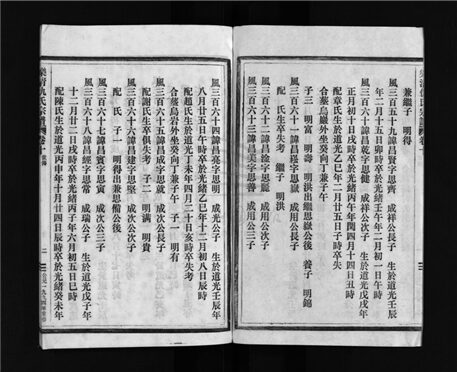 兼繼子　明得
風三百五十九諱昌賢字思齊　成祥公長子　生於道光壬辰
年二月十五日午時卒於光緒壬午年二月初一日午時
風三百六十諱昌乾字思健　成祥公次子　生於道光戊戌年
正月初三日戌時卒於光緒丙午年閏四月十四日丑時
配章氏生於道光乙巳年二月廿五日子時卒失
合葬烏岩外坐癸向丁兼子午
風三百六十一諱昌嶐字思嶽　成用公長子
子三　明富　明壽　明洪出繼思嶽公後　養子　明錦
風三百六十二諱昌淦字思麗　成用公次子
配　氏生卒失考　繼子　明洪
風三百六十三諱昌美字思善　成用公三子
風三百六十四諱昌亮字思明　成光公子　生於道光壬辰年
八月廿五日午時卒於光緒乙巳年十二月初八日辰時
配趙氏生於道光丁未年四月二十日亥時卒失考
合葬烏岩外坐癸向丁兼子午　子一　明有
風三百六十五諱昌成字思就　成次公長子
配謝氏生卒俱失考　子二　明滿　明貴
風三百六十六諱昌建字思堅　成次公次子
配　氏　子一　明得出兼思備公後
風三百六十七諱昌寅字思寅　成次公三子
風三百六十八諱昌經字思常　成瑞公子　生於道光戊子年
十二月廿二日戌時卒於光緒丙子年六月初五日巳時
配陳氏生於道光丙申年十月廿四日辰時卒於光緒癸未年
樂清仇氏宗譜 卷
二
公元一九九四年重修